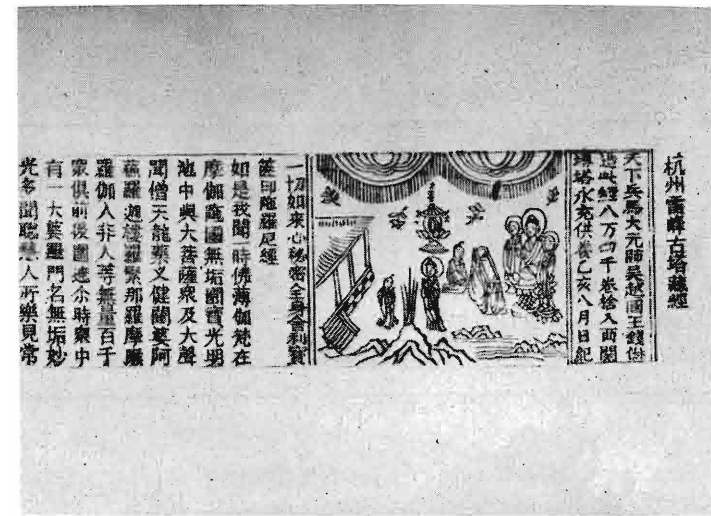 杭州雷峰古塔藏經
天下兵馬大元帥吳越國王錢俶
造此經八万四千卷捨入西關
塼塔永充供養乙亥八月日紀
一切如來心秘密全身舍利寳
篋印陁羅尼經
如是我聞一時佛薄伽梵在
摩伽陁國無垢園寶光明
池中與大菩薩衆及大聲
聞僧天龍藥叉健闥婆阿
蘓羅迦樓羅緊那羅摩睺
羅伽人非人等無量百千
衆俱前後圍遶尒時衆中
有一大婆羅門名無垢妙
光多聞聰慧人所樂見常